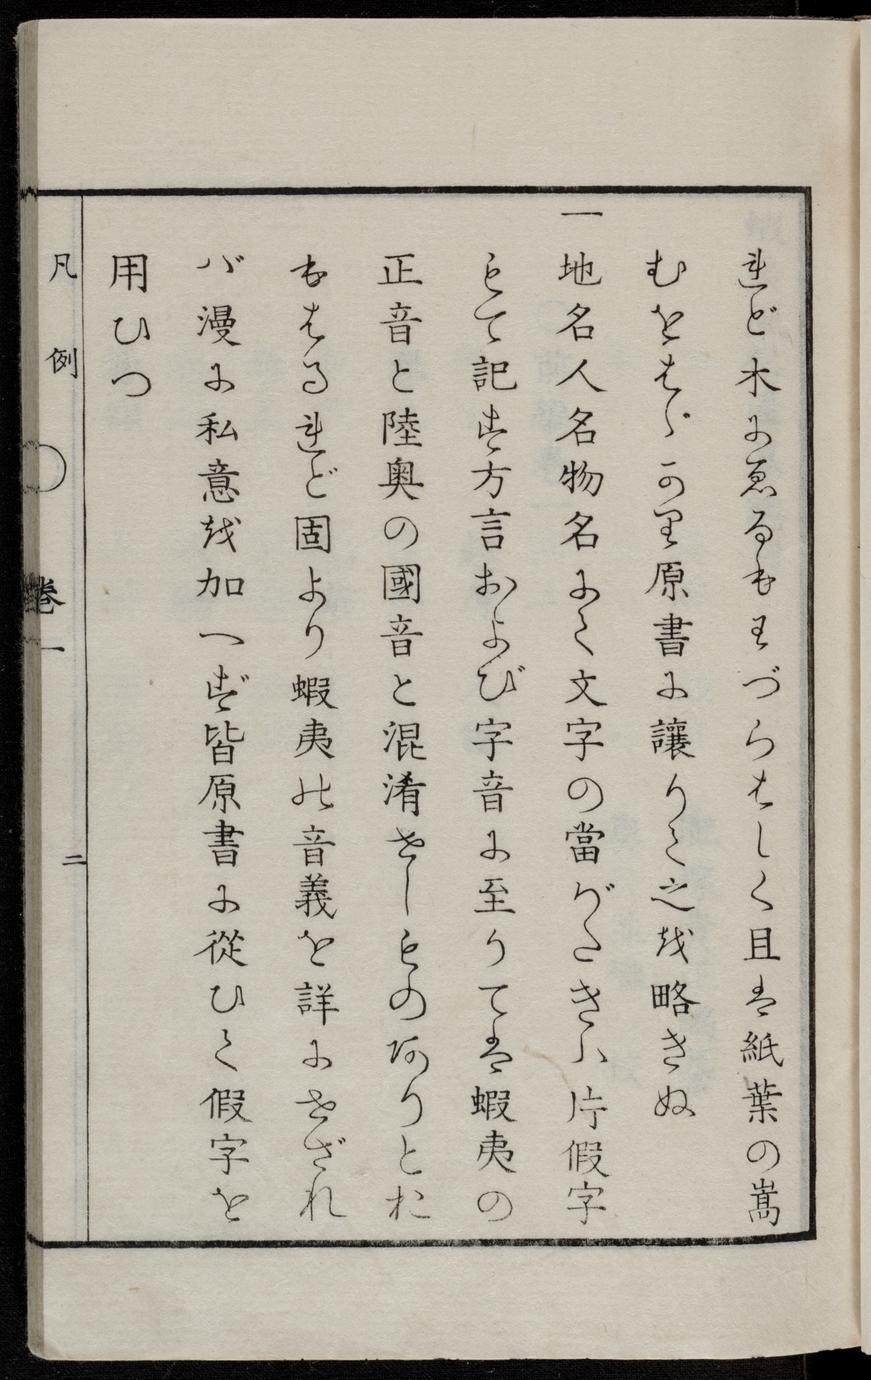 れど木にゑるもわづらはしく且は紙葉の嵩
むをはゞかり原書に讓りて之を略きぬ
一地名人名物名にて文字の當がたきハ片假字
もて記す方言および字音に至りては蝦夷の
正音と陸奥の國音と混淆せしものありとお
もはるれど固より蝦夷の音義を詳にせざれ
バ漫に私意を加へず皆原書に從ひて假字を
用ひつ
凡例 〇 卷一 二